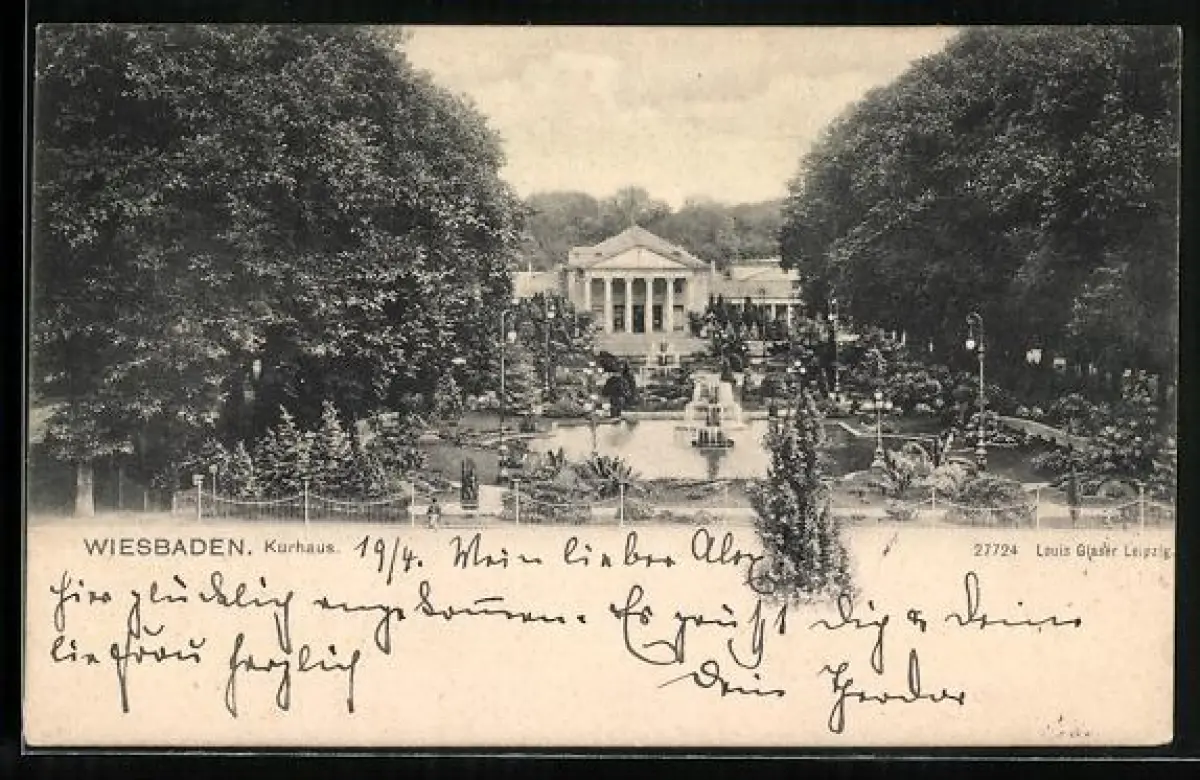 WIESBADEN. Kurhaus.
27724 Louis Glaser Leipzig.
19/4. Mein lieber Alex
hier glücklich angekommen. Es grüßt Dich & Deine
lie Frau herzlich
Dein Theodor